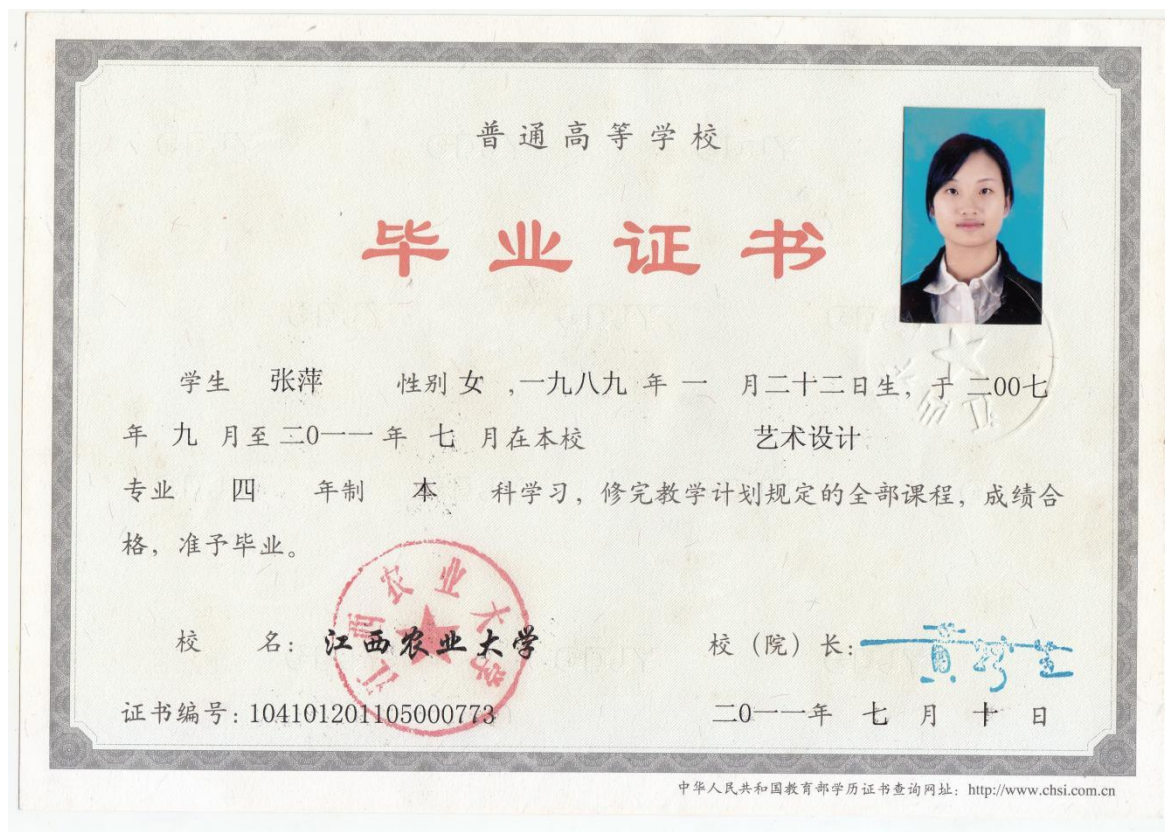 普通高等学校
毕业证书
学生 张萍 性别 女 ,一九八九 年 一 月二十二日生, 于 二00七
年 九 月至 二0一一 年 七 月在本校 艺术设计
专业 四 年制 本 科学习, 修完教学计划规定的全部课程, 成绩合
格, 准予毕业。
江西农业大学
校 名: 江西农业大学 校 (院) 长:
证书编号: 104101201105000773 二0一一年 七 月 十 日
中华人民共和国教育部学历证书查询网址: http://www.chsi.com.cn